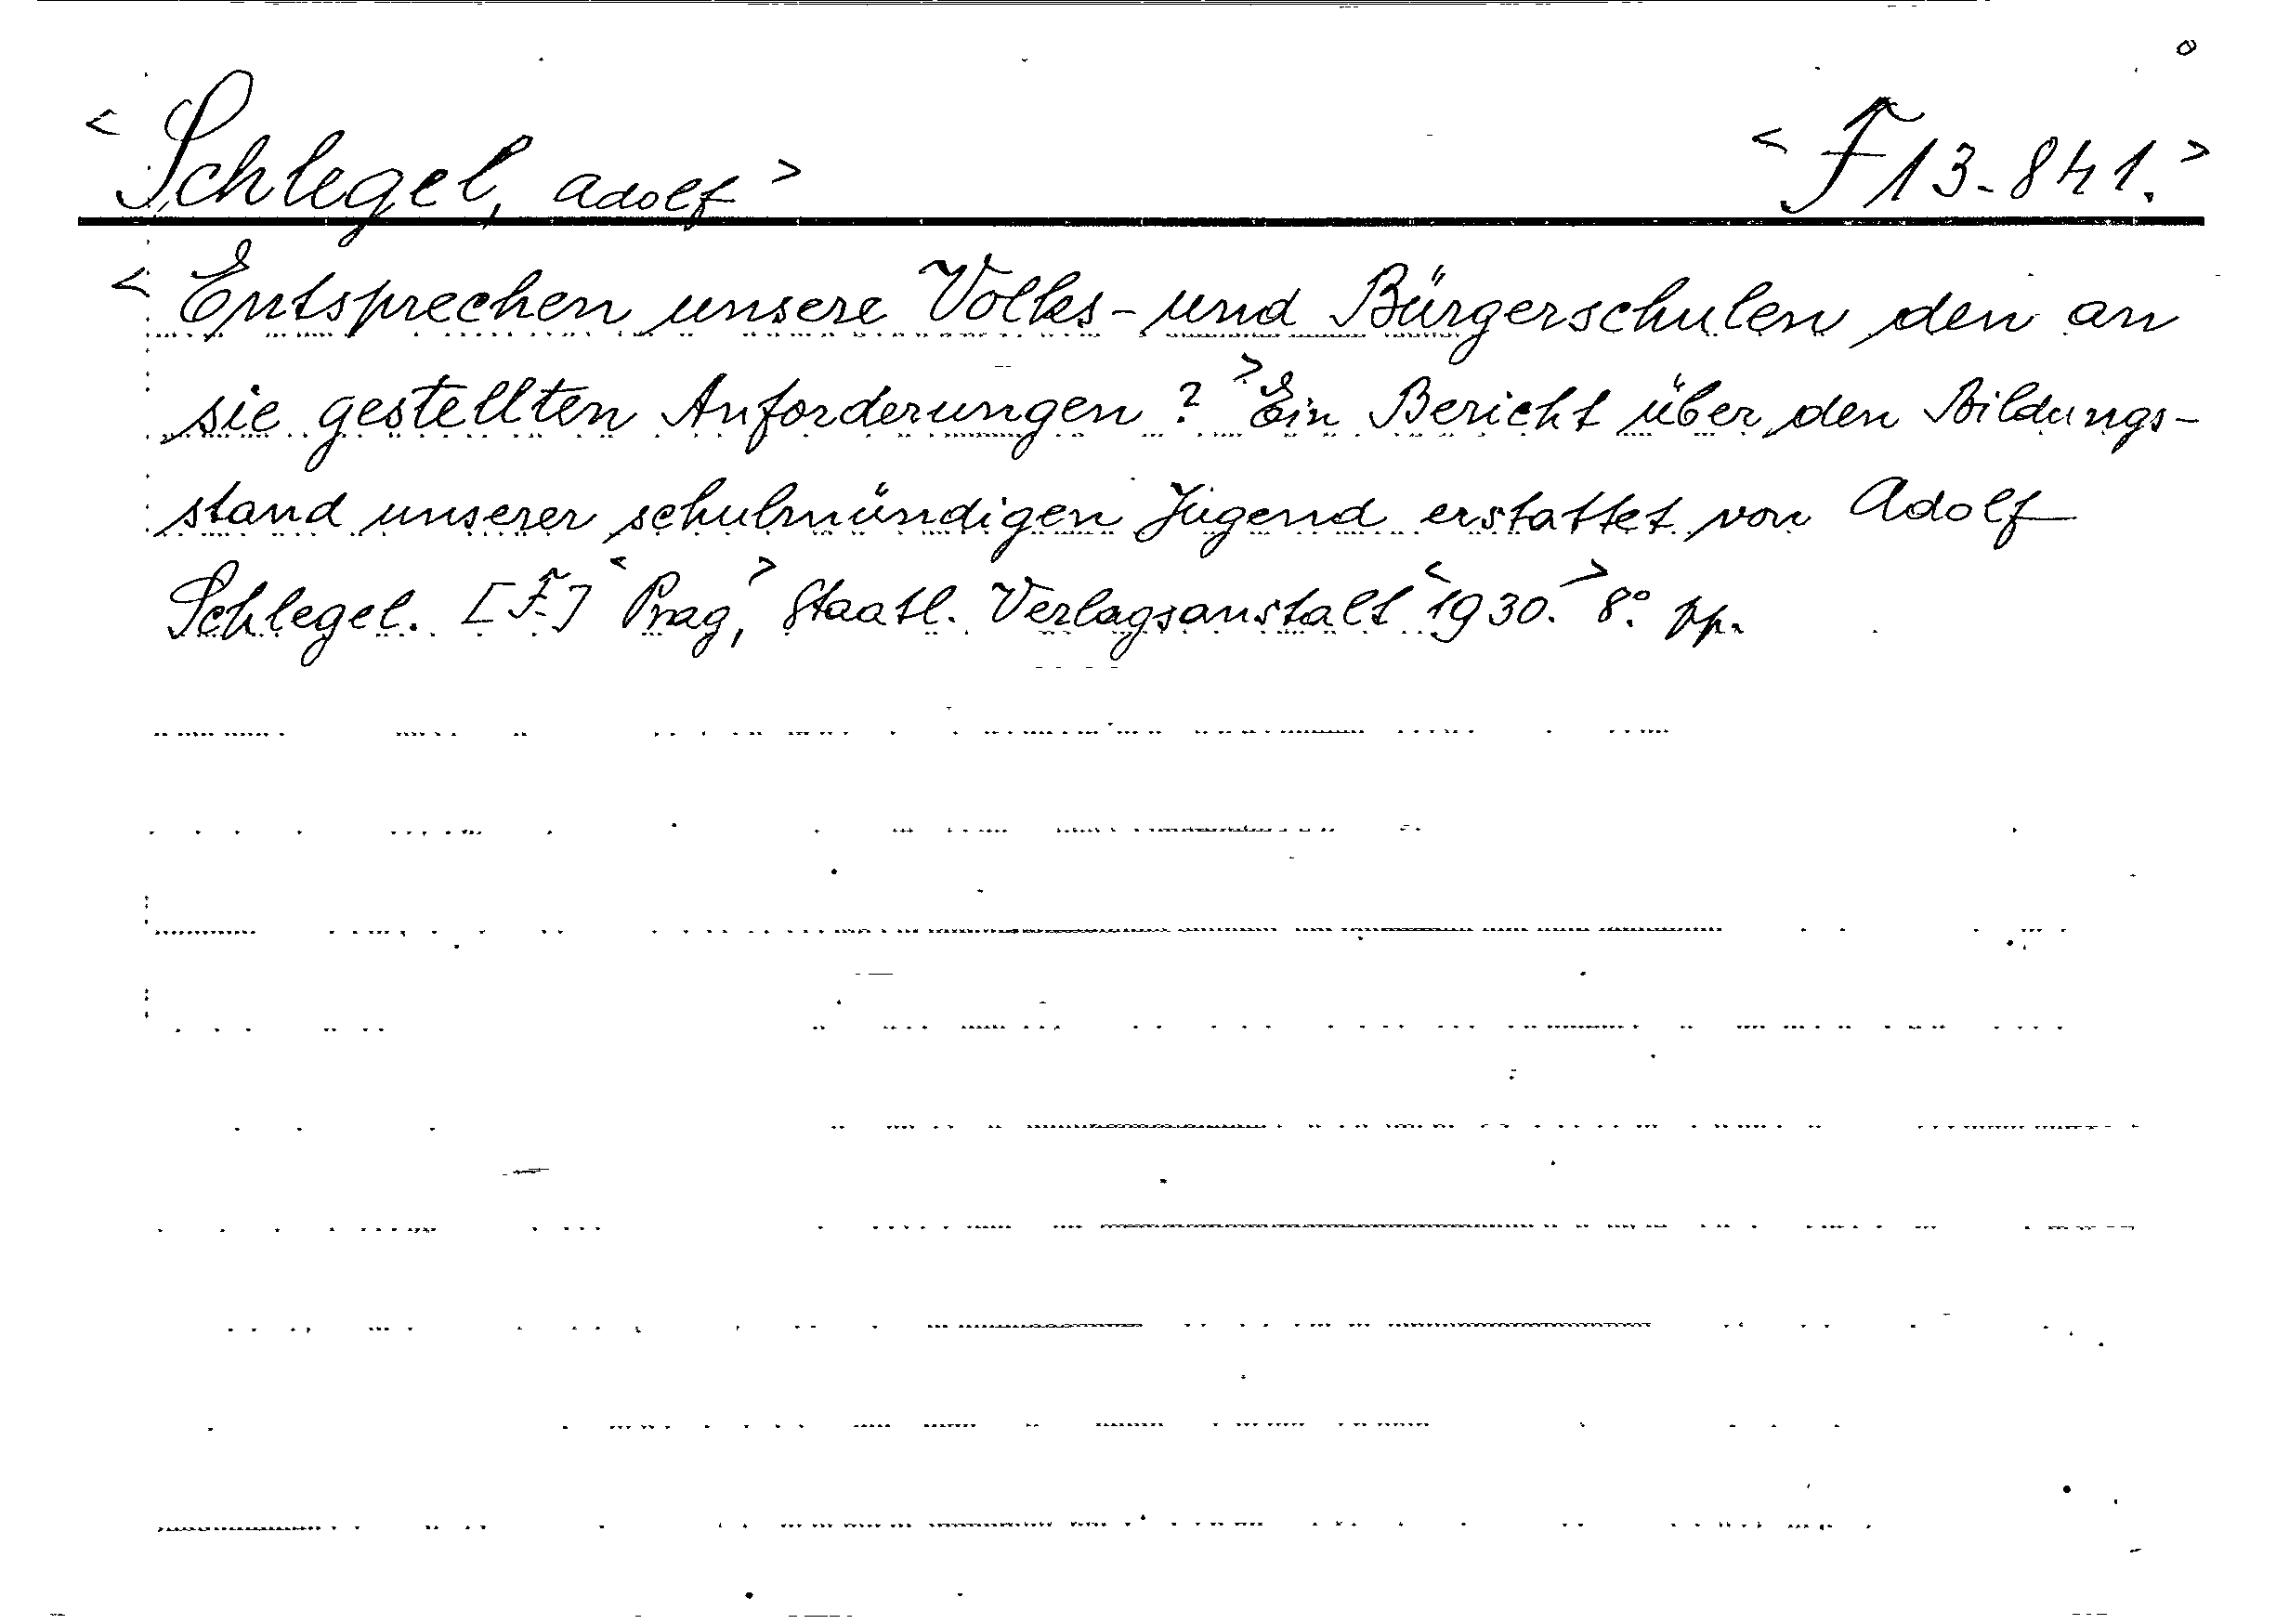 < Schlegel, Adolf > < F 13-841. >
< Entsprechen unsere Volks- und Bürgerschulen den an
sie gestellten Anforderungen ? > Ein Bericht über den Bildungs-
stand unserer schulmündigen Jugend erstattet von Adolf
Schlegel. [F.] < Prag, > Staatl. Verlagsanstalt < 1930. > 8°. pp.